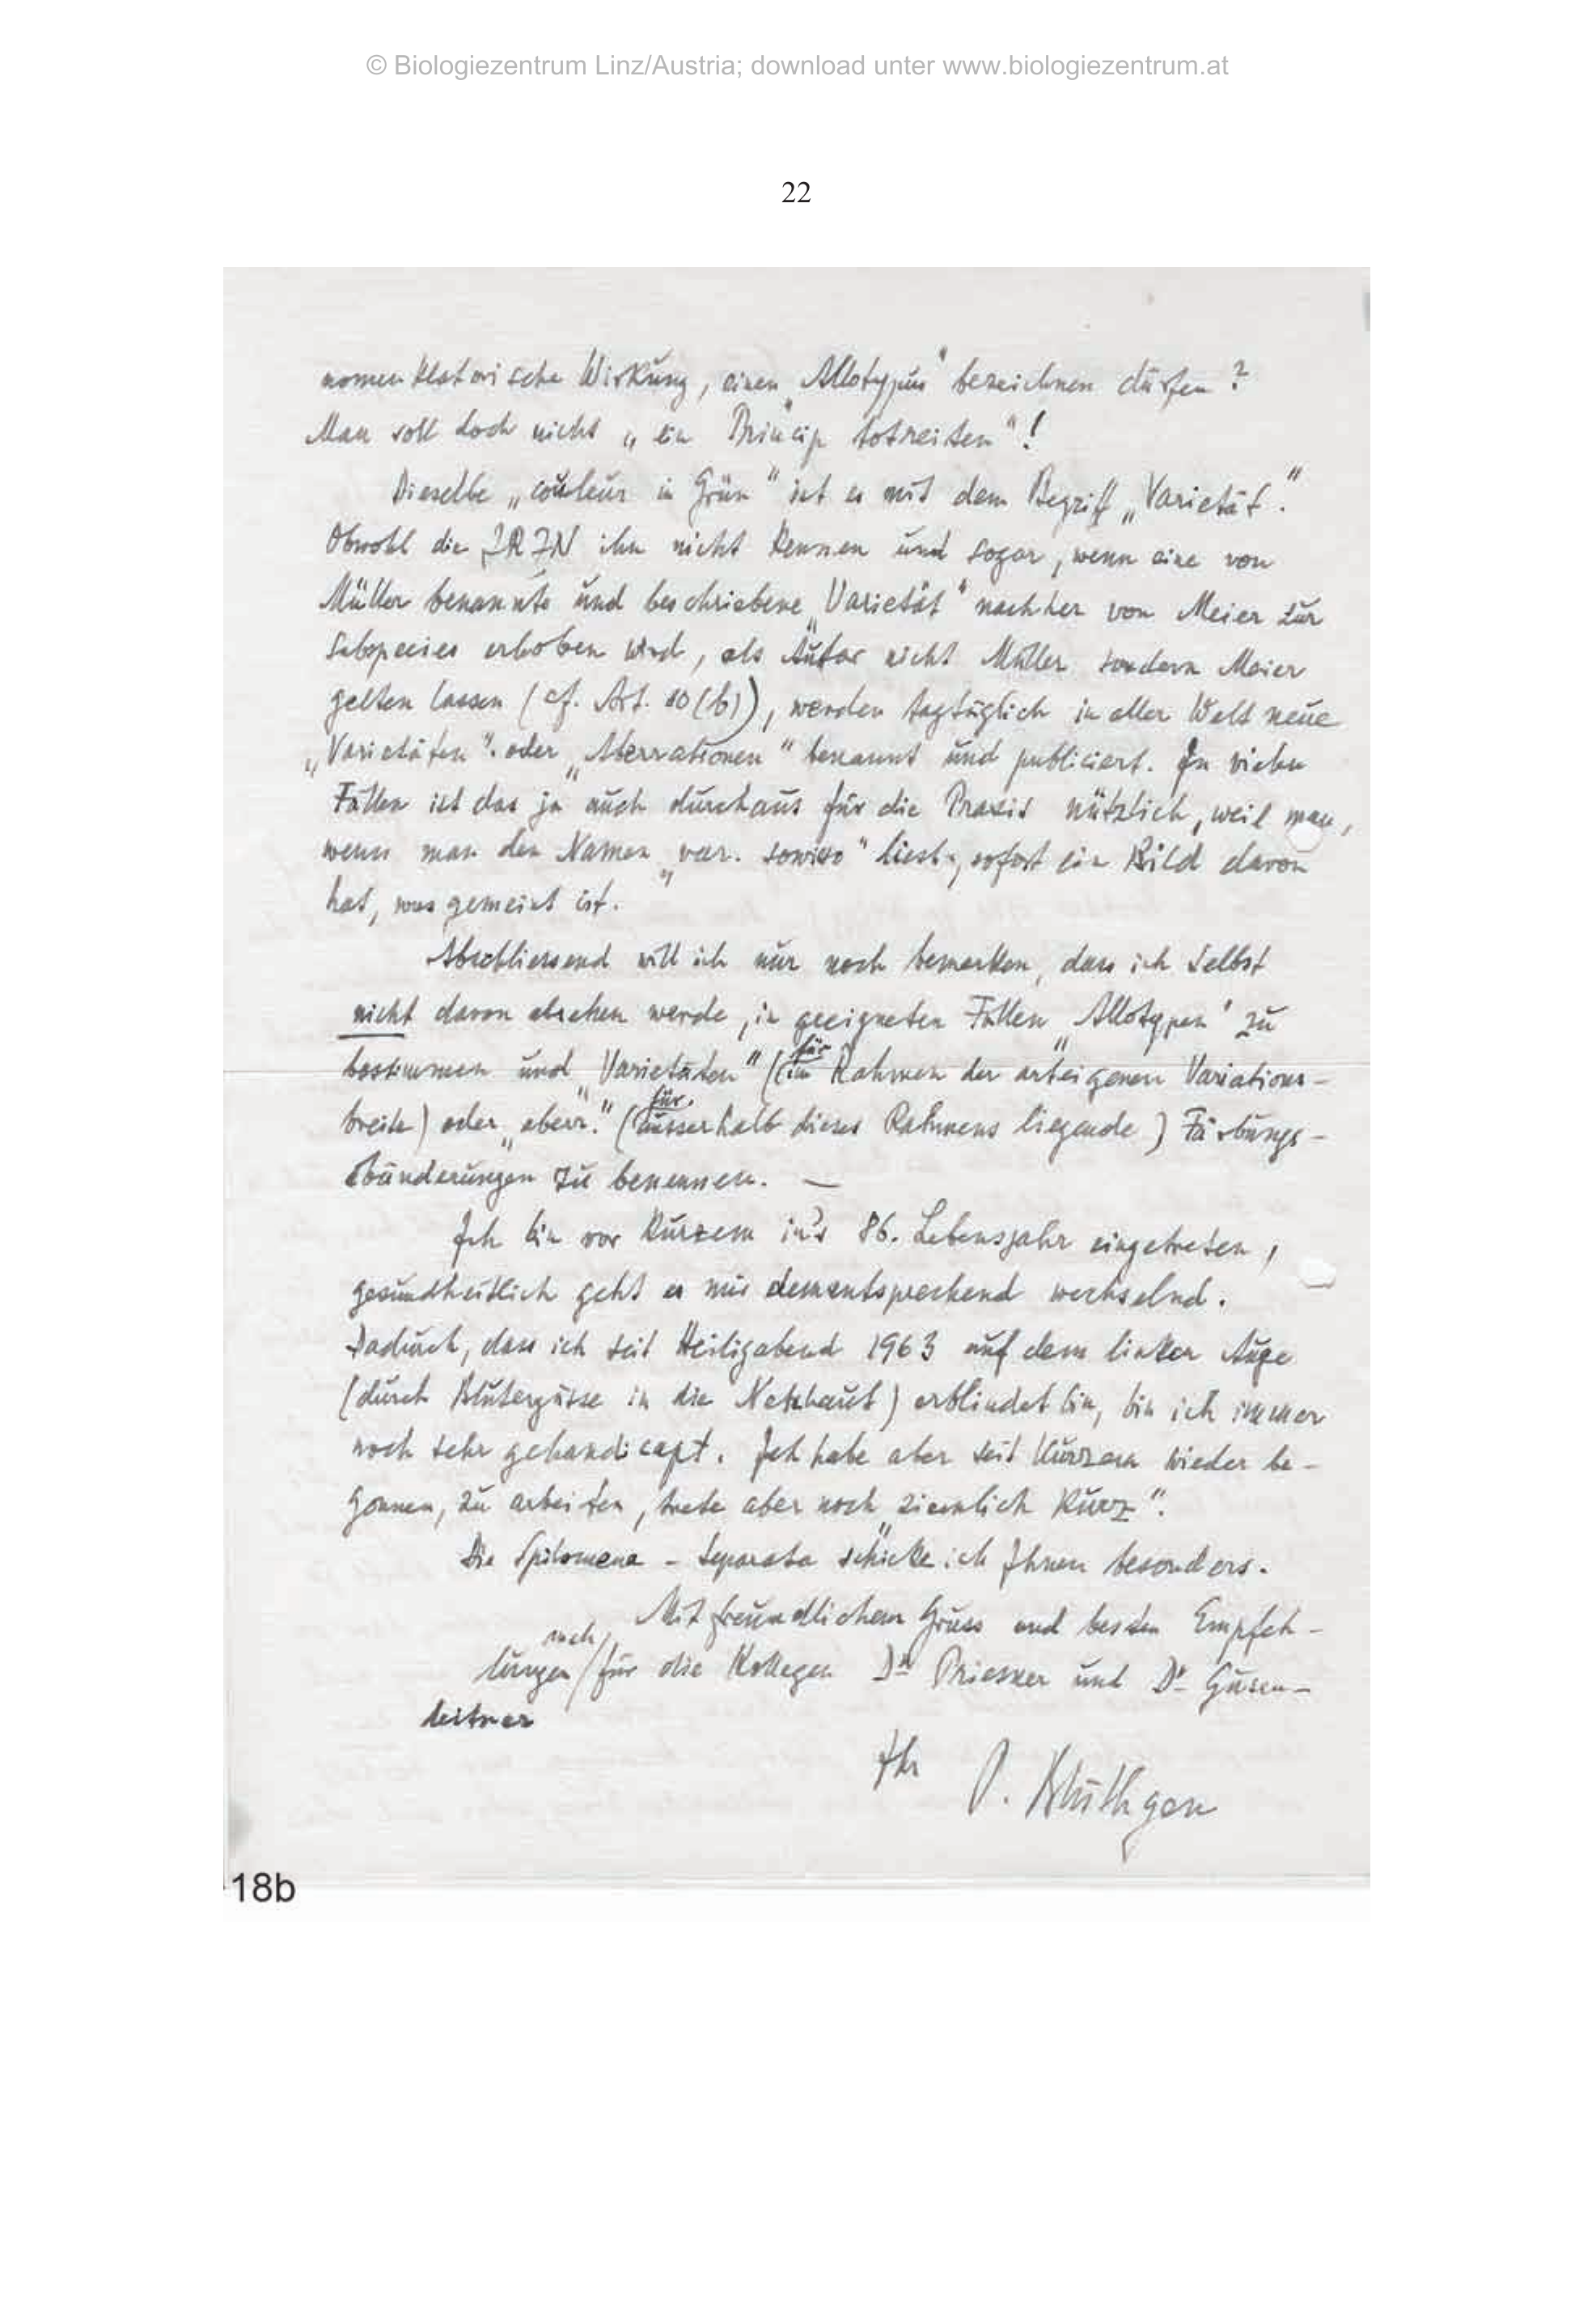 © Biologiezentrum Linz/Austria; download unter www.biologiezentrum.at
22
nomenklatorische Wirkung, einen „Allotypus“ bezeichnen dürfen?
Man soll doch nicht „ein Princip totreiten“!
Dieselbe „couleur in Grün“ ist es mit dem Begriff „Varietät.“
Obwohl die IRZN ihn nicht kennen und sogar, wenn eine von
Müller benannte und beschriebene „Varietät“ nachher von Meier zur
Subspecies erhoben wird, als Autor nicht Müller sondern Meier
gelten lassen (cf. Art. 10(b)), werden tagtäglich in aller Welt neue
„Varietäten“ oder „Aberrationen“ benannt und publiciert. In vielen
Fällen ist das ja auch durchaus für die Praxis nützlich, weil man,
wenn man den Namen „var. sowieso“ liest, sofort ein Bild davon
hat, was gemeint ist.
Abschliessend will ich nur noch bemerken, dass ich selbst
nicht davon absehen werde, in geeigneten Fällen „Allotypen“ zu
bestimmen und „Varietäten“ (für im Rahmen der arteigenen Variations-
breite) oder „aberr.“ (für ausserhalb dieses Rahmens liegende) Färbungs-
abänderungen zu benennen. —
Ich bin vor Kurzem in's 86. Lebensjahr eingetreten,
gesundheitlich geht es mir dementsprechend wechselnd.
Dadurch, dass ich seit Heiligabend 1963 auf dem linken Auge
(durch Blutergüsse in die Netzhaut) erblindet bin, bin ich immer
noch sehr gehandicapt. Ich habe aber seit Kurzem wieder be-
gonnen, zu arbeiten, trete aber noch „ziemlich kurz“.
Die Spilomena - Separata schicke ich Ihnen besonders.
Mit freundlichem Gruss und besten Empfeh-
lungen auch für die Kollegen Dr Priesner und Dr Gusen-
leitner
Ihr P. Blüthgen
18b